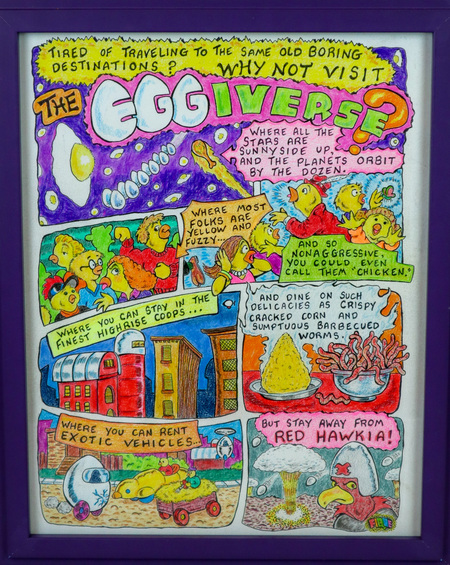 TIRED OF TRAVELING TO THE SAME OLD BORING
DESTINATIONS? WHY NOT VISIT
THE EGGIVERSE?
WHERE ALL THE
STARS ARE
SUNNYSIDE UP,
AND THE PLANETS ORBIT
BY THE DOZEN.
WHERE MOST
FOLKS ARE
YELLOW AND
FUZZY...
AND SO
NONAGGRESSIVE,
YOU COULD EVEN
CALL THEM "CHICKEN."
WHERE YOU CAN STAY IN THE
FINEST HIGHRISE COOPS...
AND DINE ON SUCH
DELICACIES AS CRISPY
CRACKED CORN AND
SUMPTUOUS BARBECUED
WORMS.
WHERE YOU CAN RENT
EXOTIC VEHICLES...
BUT STAY AWAY FROM
RED HAWKIA!